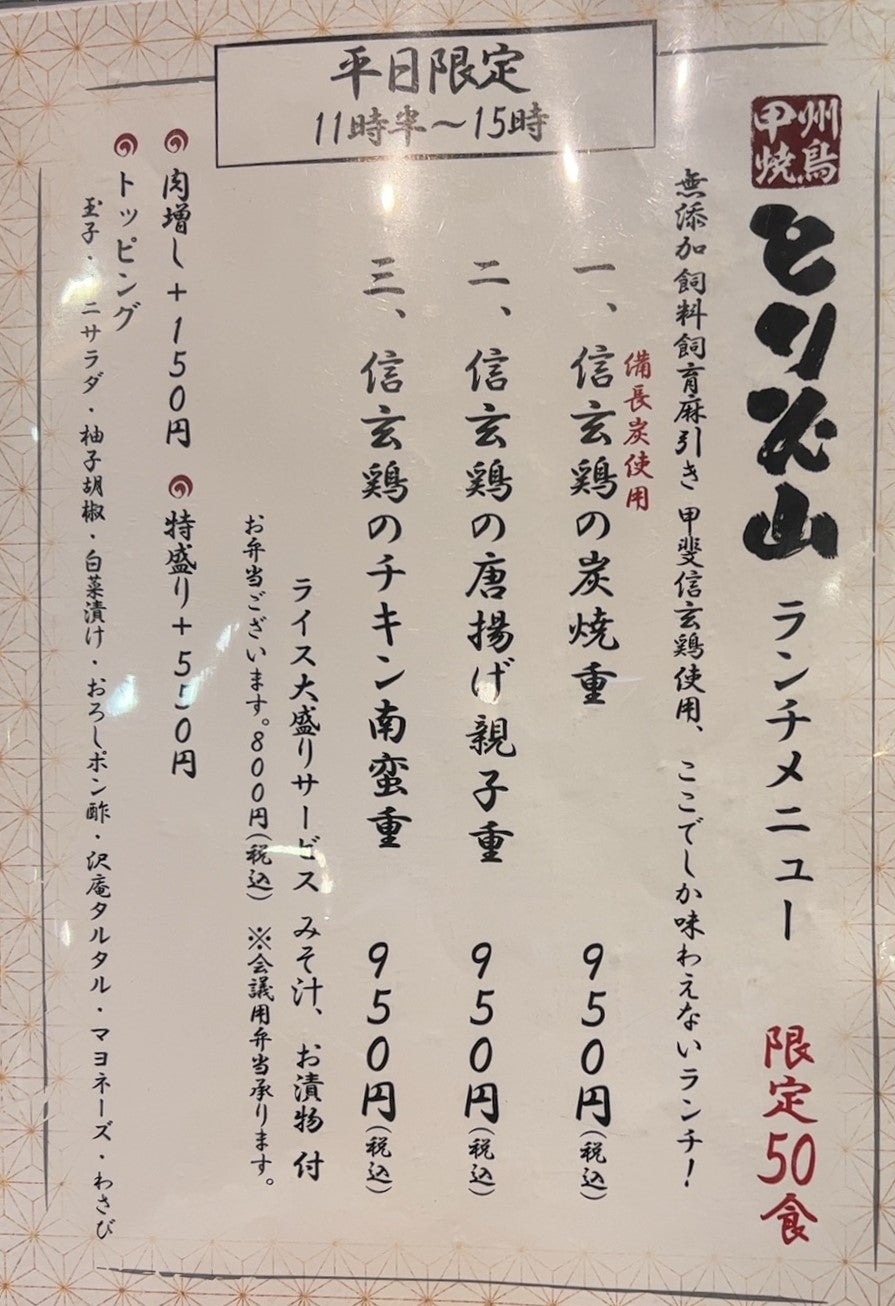 平日限定
11時半～15時
甲州
焼鳥
ランチメニュー 限定50食
無添加飼料飼育麻引き 甲斐信玄鶏使用、ここでしか味わえないランチ！
備長炭使用
一、信玄鶏の炭焼重 950円(税込)
二、信玄鶏の唐揚げ親子重 950円(税込)
三、信玄鶏のチキン南蛮重 950円(税込)
ライス大盛りサービス みそ汁、お漬物 付
お弁当ございます。800円(税込) ※会議用弁当承ります。
肉増し＋150円 特盛り＋550円
トッピング
玉子・ミニサラダ・柚子胡椒・白菜漬け・おろしポン酢・沢庵タルタル・マヨネーズ・わさび